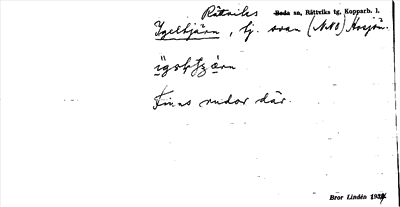 Rättviks Boda sn, Rättviks tg, Kopparb. l.
Igeltjärn, tj. ovan (NNO) Kvisjön.
Finns rudor där.
Bror Lindén 1934